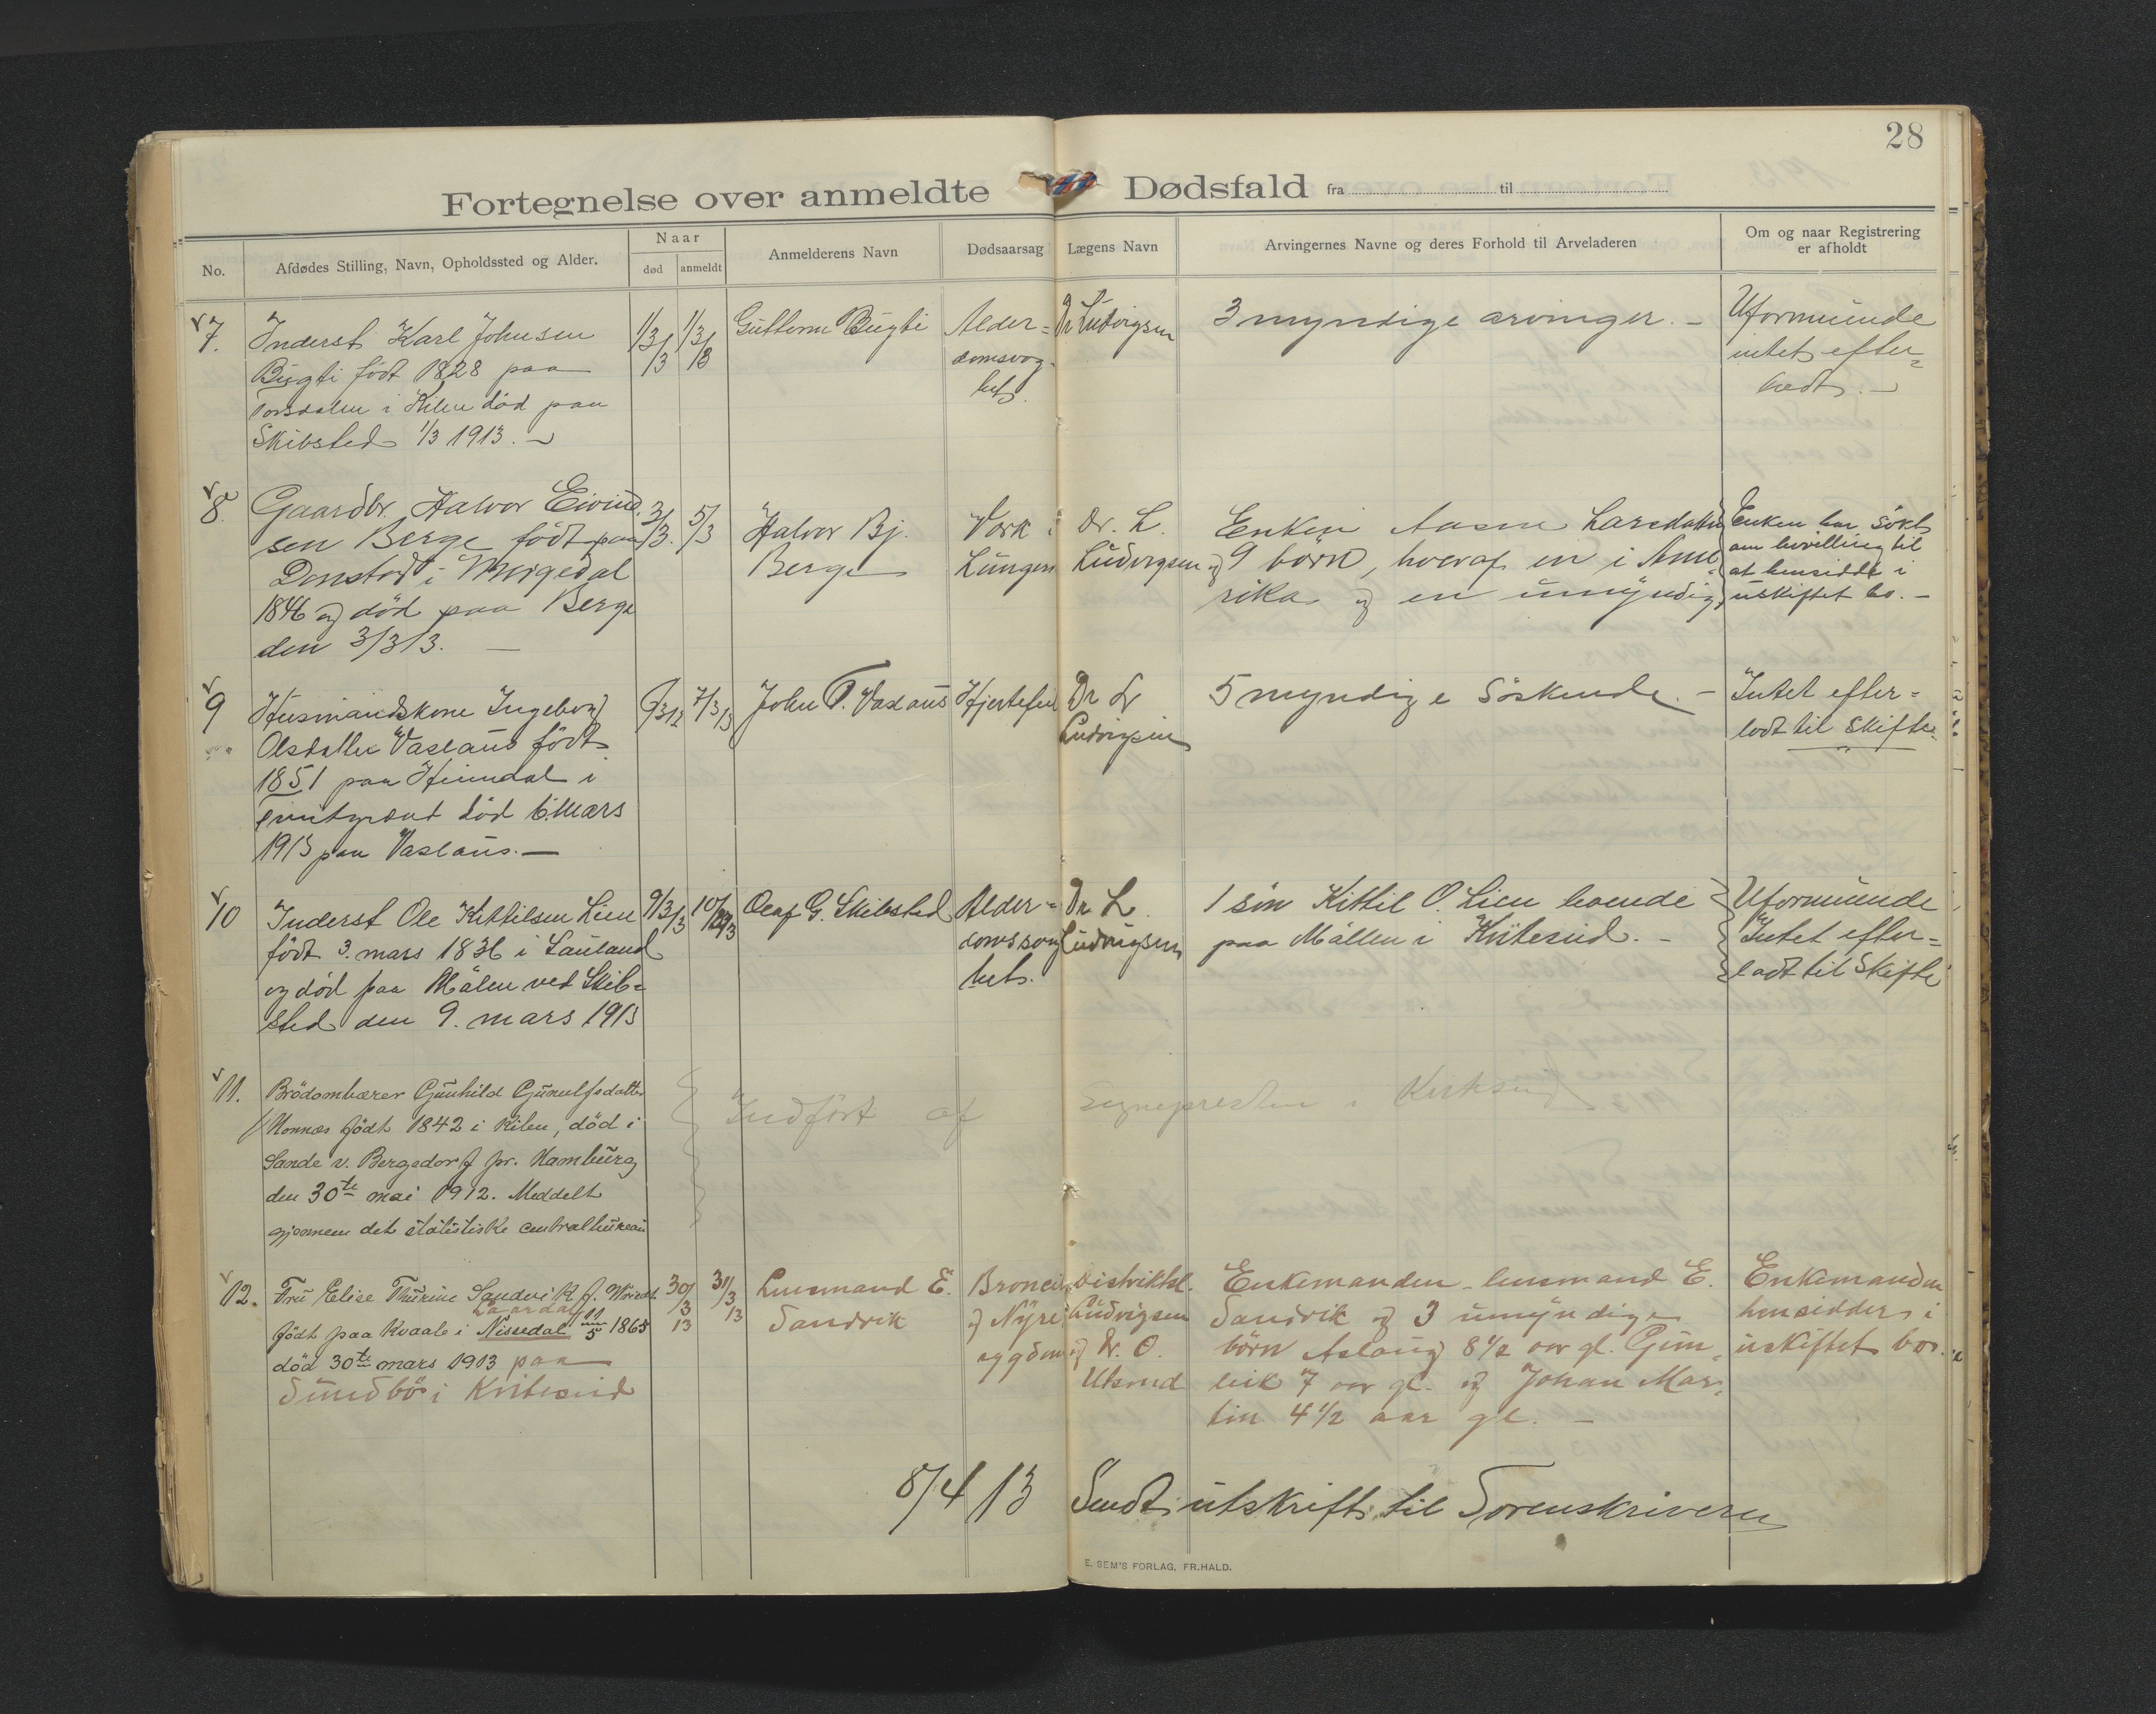 28
Fortegnelse over anmeldte Dødsfald fra til
No.
Afdødes Stilling, Navn, Opholdssted og Alder.
Naar
død
anmeldt
Anmelderens Navn
Dødsaarsag
Lægens Navn
Arvingernes Navne og deres Forhold til Arveladeren
Om og naar Registrering
er afholdt
7.
Inderst Karl Johnsen
Bugti födt 1828 paa
Torsdalen i Kilen död paa
Skibsted 1/3 1913.
1/3 13
1/3 13
Guttorm Bugti
Alder=
domsvag-
het.
Dr Ludvigsen
3 myndige arvinger. -
Uformuende
intet efter=
ladt. -
8.
Gaardbr. Halvor Eivind-
sen Berge födt paa
i Morgedal
1846 og död paa Berge
den 3/3 13. -
3/3 13.
5/3
Halvor Bj.
Berge
Værk i
Lungen
Dr. L.
Ludvigsen
Enken Aasne Larsdatter
og 9 börn, hvoraf en i Ame-
rika og en umyndig
Enken har sökt
om bevilling til
at hensidde i
uskiftet bo. -
9
Husmandskone Ingeborg
Olsdatter Vaslaus födt
1851 paa Heimdal i
död 6. mars
1913 paa Vaslaus. -
7/3 13
John T. Vaslaus
Hjertefeil
Dr L
Ludvigsen
5 myndige Söskende. -
Intet efter=
ladt til Skifte.
10
Inderst Ole Kittilsen Lien
födt 3. mars 1836 i Lauland
og död paa Mälen ved Skib=
sted den 9. mars 1913
9/3 13
10/3 13
Olaf G. Skibsted
Alder=
domssvag
het.
Dr L.
Ludvigsen
1 sön Kittil O. Lien boende
paa Mällen i Kvitesæid. -
Uformuende
Intet efter=
ladt til Skifte
11.
Brödombærer Gunhild Gunulfsdatter
Nonnas födt 1842 i Kilen, död i
Sande v. Bergedorf pr. Hamburg
den 30te mai 1912. Meddelt
gjennem det statistiske centralbureau
Indfört af sognepresten i
12.
Fru Elise Thurine Sandvik f.
Laardal
födt paa Kvaale i Nissedal 11/5 1865
död 30te mars 1913 paa
Sundbö i Kvitesæid
30/3 13
31/3 13
Lensmand E.
Sandvik
og Nyre
sygdom
Distriktsl.
Ludvigsen
og Dr. O.
Utsrud
Enkemanden - lensmand E.
Sandvik og 3 umyndige
börn Aslaug 8 1/2 aar gl. Gun-
leik 7 aar gl. og Johan Mar-
tin 4 1/2 aar gl. -
Enkemanden
hensidder i
uskiftet bo.
8/4 13 Sendt utskrift til Sorenskriveren
E. SEM'S FORLAG, FR.HALD.